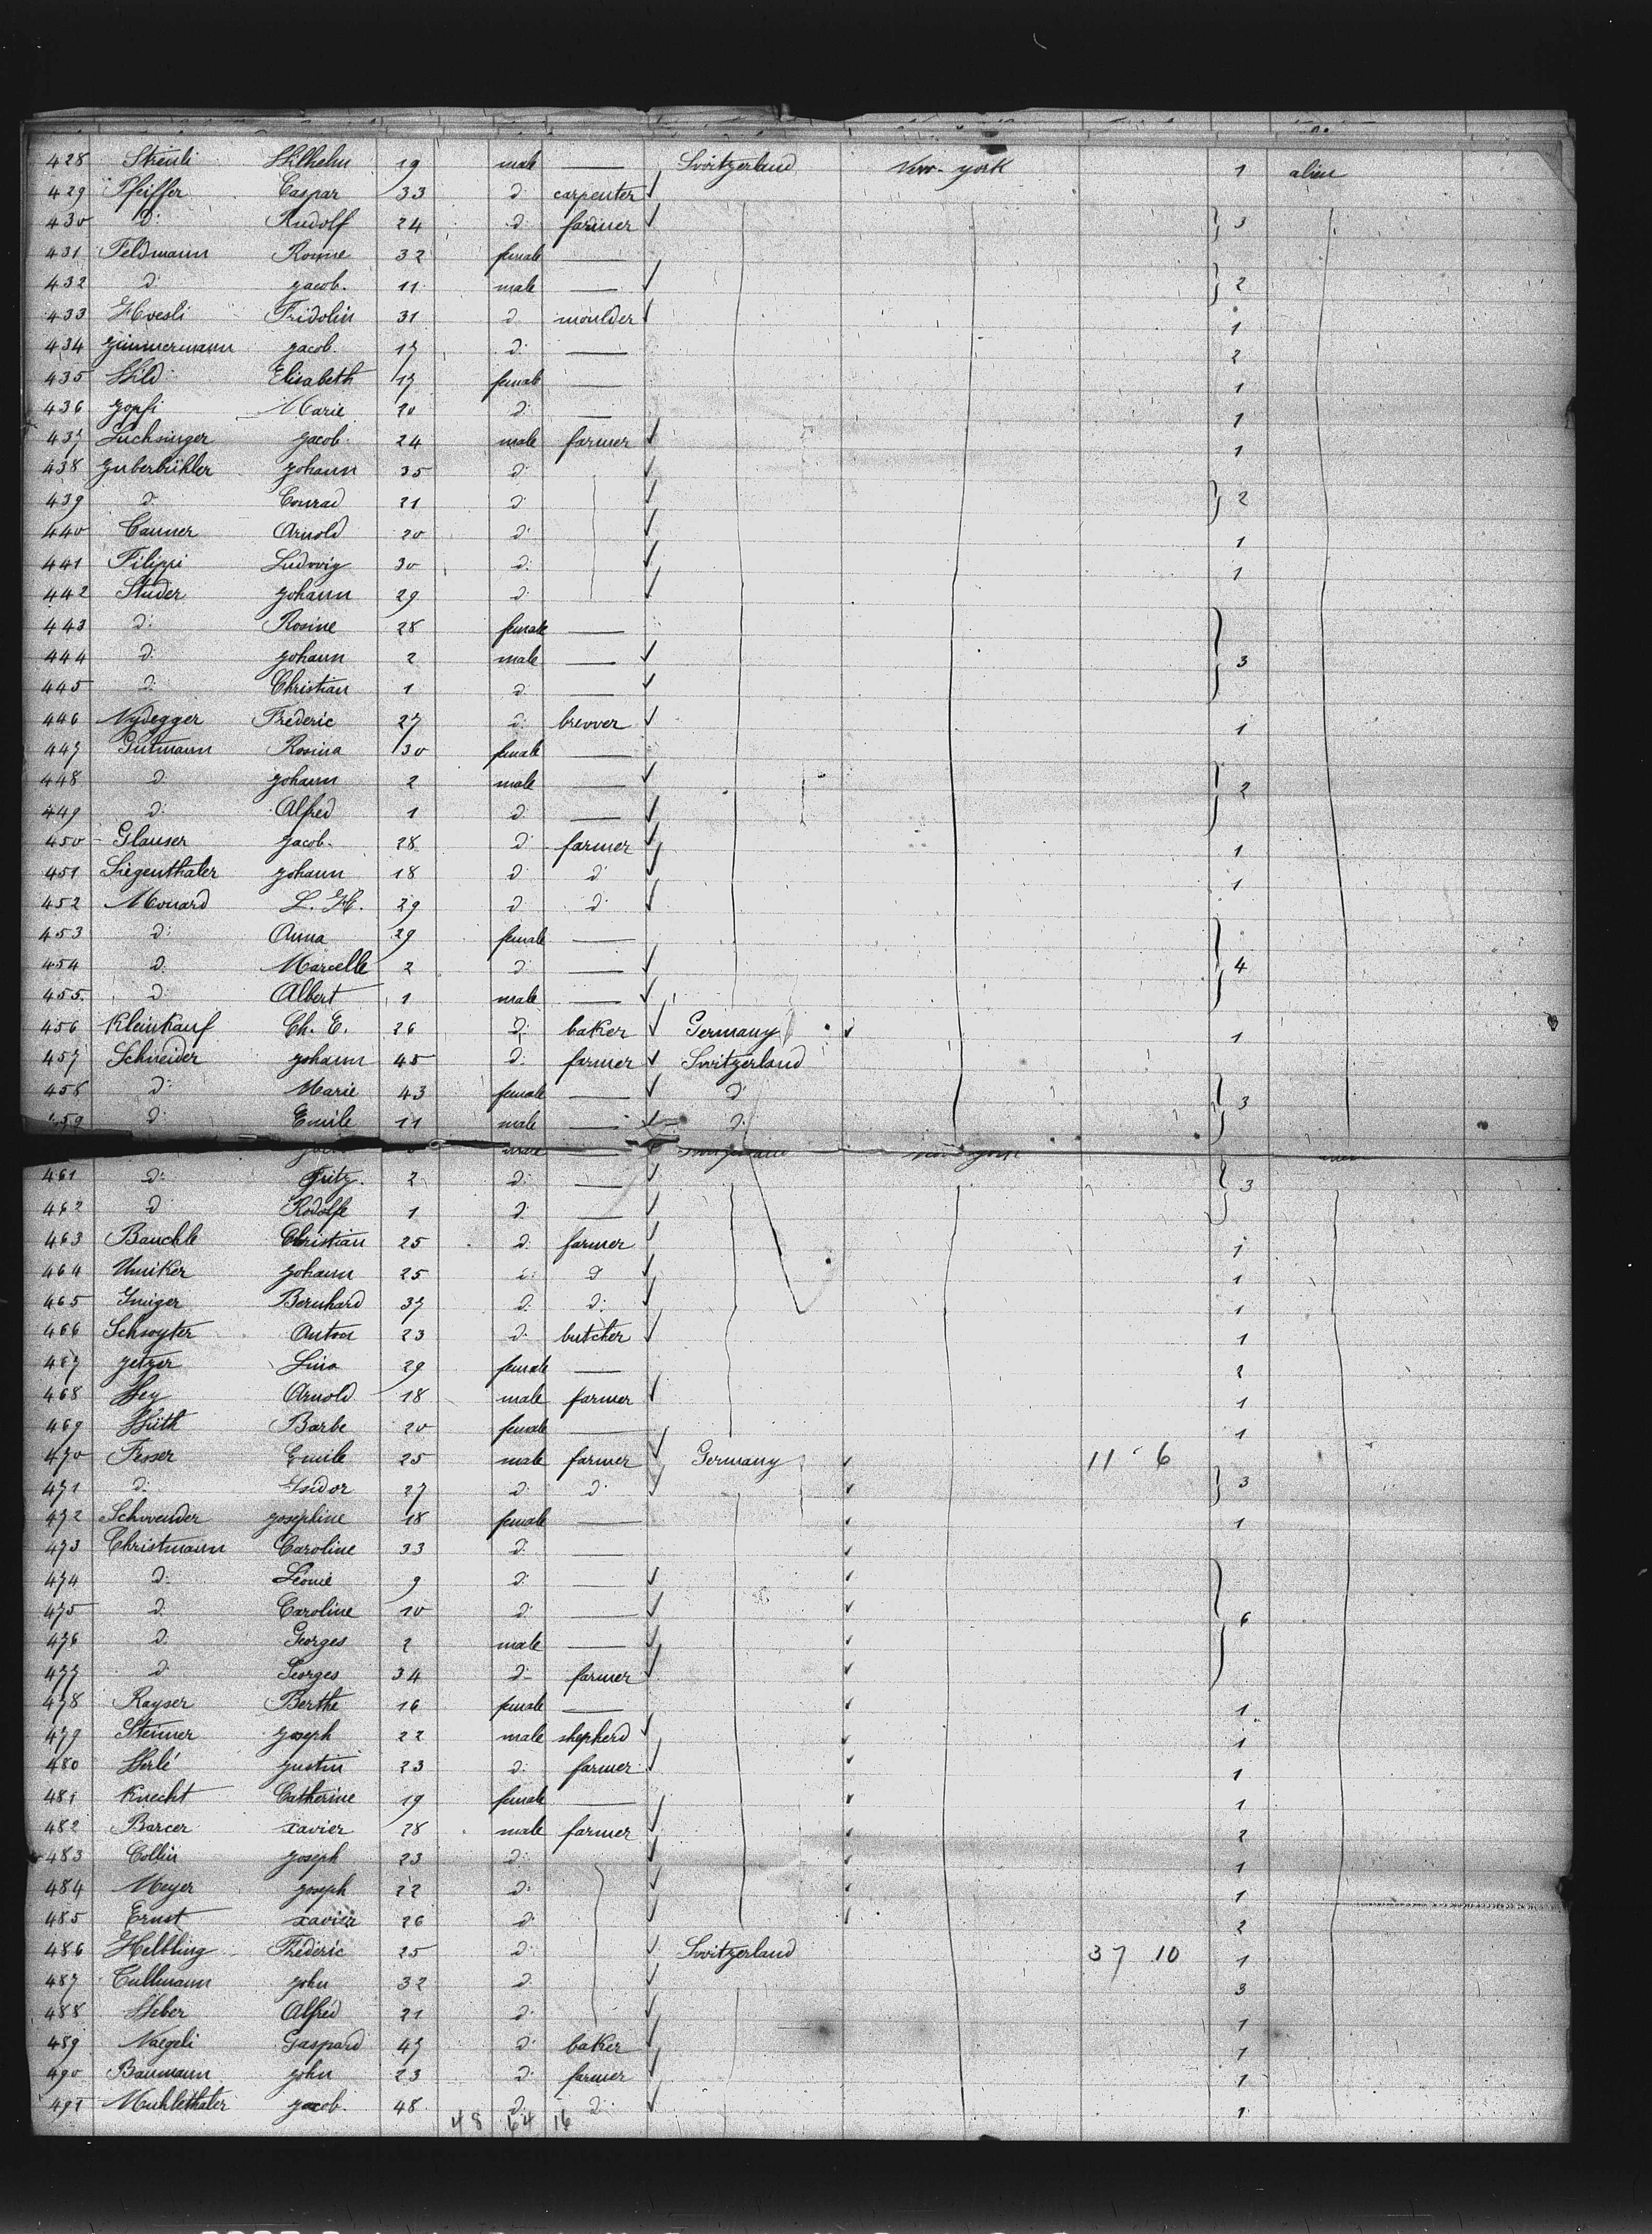 428 Streuli Wilhelm 19 male — Switzerland New-york 1 alien
429 Pfeiffer Caspar 33 d: carpenter
430 d: Rudolf 24 d: farmer 3
431 Feldmann Rosine 32 female —
432 d: Jacob. 11 male — 2
433 Hoesli Fridolin 31 d: moulder 1
434 Zimmermann Jacob. 17 d: — 2
435 Wild Elisabeth 17 female — 1
436 Zopfi Marie 20 d: — 1
437 Luchsinger Jacob. 24 male farmer 1
438 Zuberbühler Johann 35 d:
439 d: Conrad 21 d: 2
440 Canner Arnold 20 d: 1
441 Filippi Ludwig 30 d: 1
442 Studer Johann 29 d:
443 d: Rosine 28 female —
444 d: Johann 2 male — 3
445 d: Christian 1 d: —
446 Nydegger Fréderic 27 d: brewer 1
447 Gutmann Rosina 30 female —
448 d: Johann 2 male — 2
449 d: Alfred 1 d: —
450 Glauser Jacob. 28 d: farmer 1
451 Siegenthaler Johann 18 d: d: 1
452 Monard L. H. 29 d: d:
453 d: Anna 29 female —
454 d: Marcelle 2 d: — 4
455 d: Albert 1 male —
456 Kleinkauf Ch. E. 26 d: baker Germany 1
457 Schneider Johann 45 d: farmer Switzerland
458 d: Marie 43 female — d: 3
459 d: Emile 11 male — d:
Switzerland New-york
461 d: Fritz. 2 d: — 3
462 d: Rodolfe 1 d: —
463 Bauchle Christian 25 d: farmer 1
464 Umiker Johann 25 d: d: 1
465 Iniger Bernhard 37 d: d: 1
466 Schwyter Anton 23 d: butcher 1
467 Jetzer Lina 29 female — 2
468 Wey Arnold 18 male farmer 1
469 Wüth Barbe 20 female — 1
470 Fesser Emile 25 male farmer Germany 11 6
471 d: Isidor 27 d: d: 3
472 Schwender Josephine 18 female — 1
473 Christmann Caroline 33 d: —
474 d: Léonie 9 d: —
475 d: Caroline 10 d: — 6
476 d: Georges 2 male —
477 d: Georges 34 d: farmer
478 Rayser Berthe 16 female — 1
479 Steimer Joseph 22 male shepherd 1
480 Werlé Justin 23 d: farmer 1
481 Knecht Catherine 19 female — 1
482 Barcer Xavier 28 male farmer 2
483 Collin Joseph 23 d: 1
484 Meyer Joseph 22 d: 1
485 Ernst Xavier 26 d: 2
486 Helbling Fréderic 25 d: Switzerland 37 10 1
487 Cullmann John 32 d: 3
488 Weber Alfred 21 d: 1
489 Naegeli Gaspard 47 d: baker 1
490 Baumann John 23 d: farmer 1
491 Muhlethaler Jacob 48 d: d: 1
48 64 16